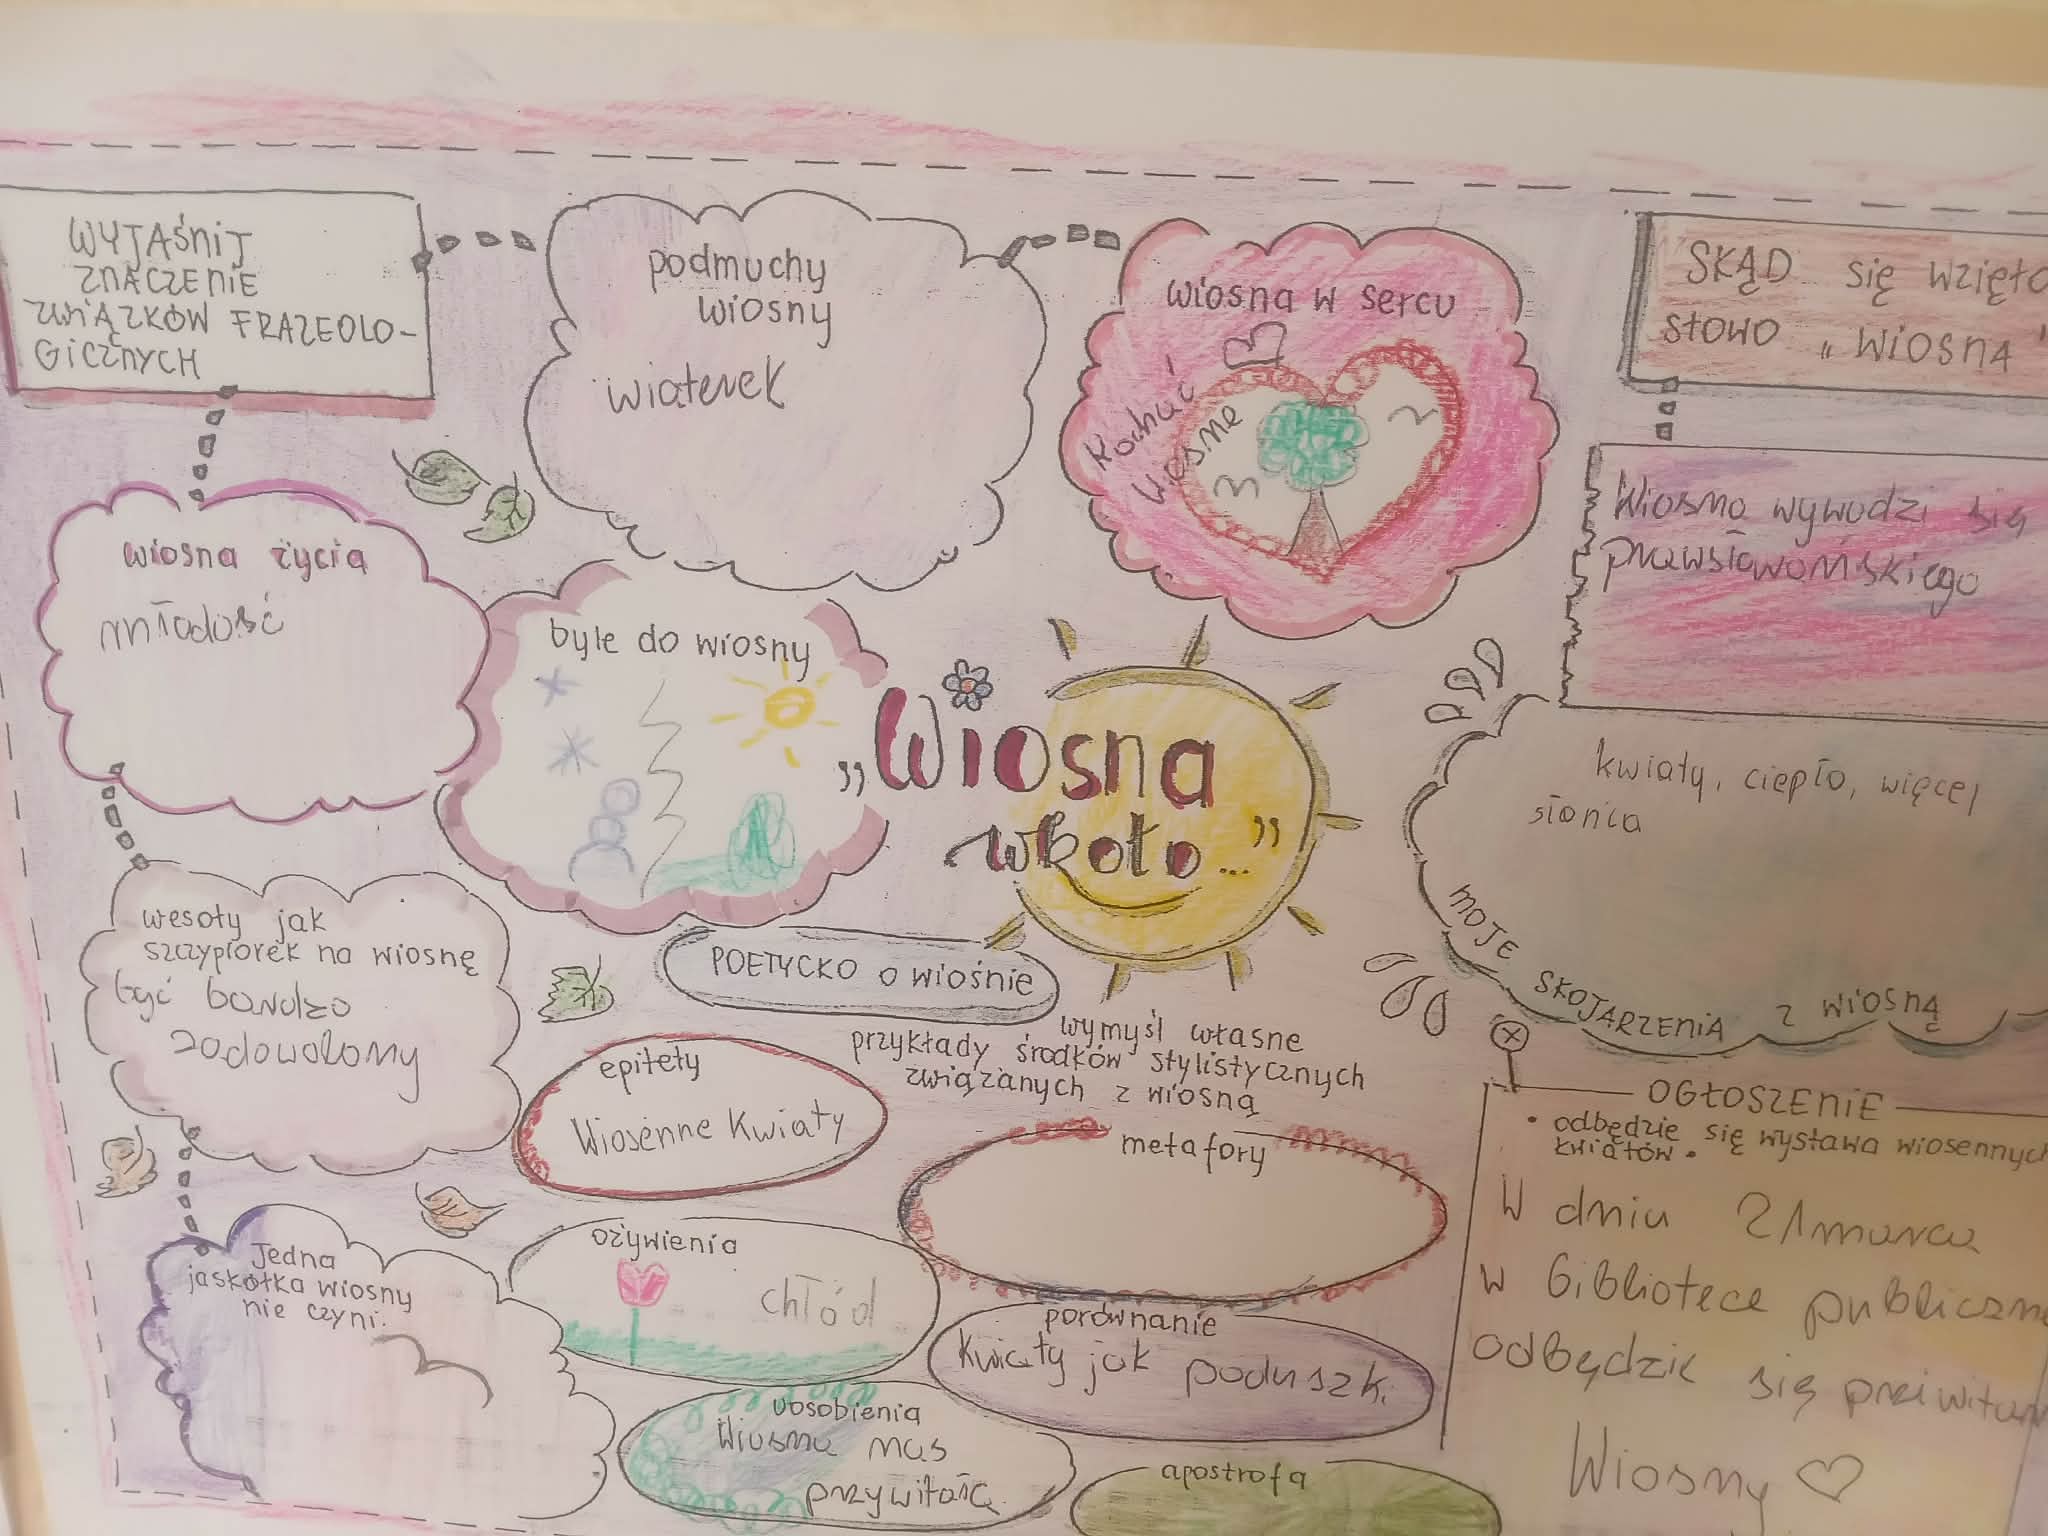 WYJAŚNIJ
ZNACZENIE
ZWIĄZKÓW FRAZEOLO-
GICZNYCH
podmuchy
wiosny
wiaterek
wiosna w sercu
kochać
wiosne
SKĄD się wzięło
słowo „WIOSNA"
Wiosna wywodzi się
prawsłowańskiego
wiosna życia
młodość
byle do wiosny
„Wiosna
wkoło..."
kwiaty, ciepło, więcej
słońca
MOJE SKOJARZENIA Z WIOSNĄ
wesoły jak
szczypiorek na wiosnę
być bardzo
zadowolony
POETYCKO o wiośnie
wymyśl własne
przykłady środków stylistycznych
związanych z wiosną
epitety
Wiosenne Kwiaty
metafory
ożywienia
chłód
porównanie
Kwiaty jak poduszki
uosobienia
Wiosna nas
przywitała
apostrofa
Jedna
jaskółka wiosny
nie czyni.
OGŁOSZENIE
• odbędzie się wystawa wiosennych
kwiatów.
W dniu 21 marca
w bibliotece
odbędzie się
Wiosny